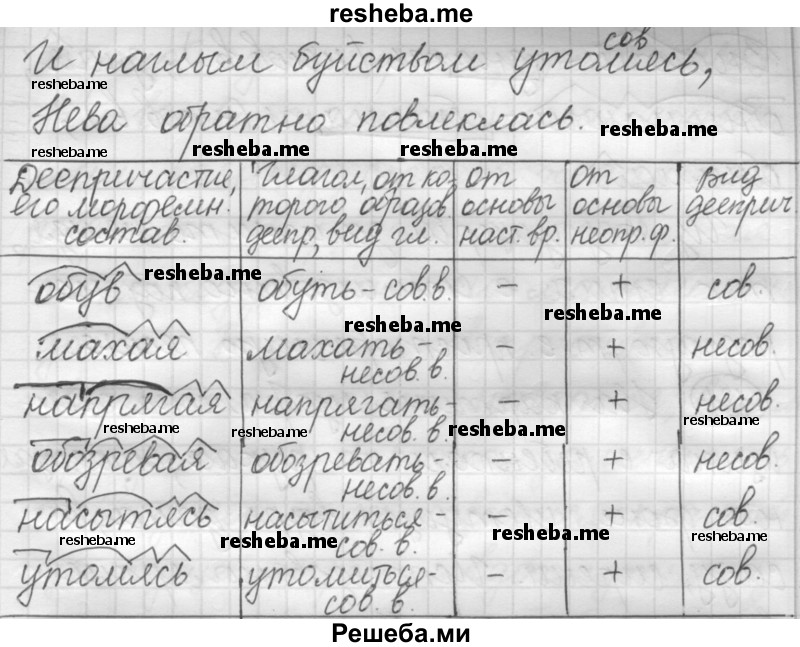 resheba.me
сов
И наглым буйством утомясь,
resheba.me
Нева обратно повлеклась. resheba.me
resheba.me resheba.me resheba.me
Деепричастие, Глагол, от ко- от от вид
его морфемн. торого образов. основы основы дееприч.
состав. деепр, вид гл. наст. вр. неопр. ф.
обув resheba.me обуть - сов.в. - + сов.
resheba.me resheba.me
махая махать - - + несов.
несов. в.
напрягая напрягать- - + несов.
resheba.me resheba.me несов. в. resheba.me resheba.me
обозревая обозревать- - + несов.
несов. в.
насытясь насытиться- - + сов.
resheba.me resheba.me сов. в. resheba.me resheba.me
утомясь утомиться- - + сов.
сов. в.
Решеба.ми